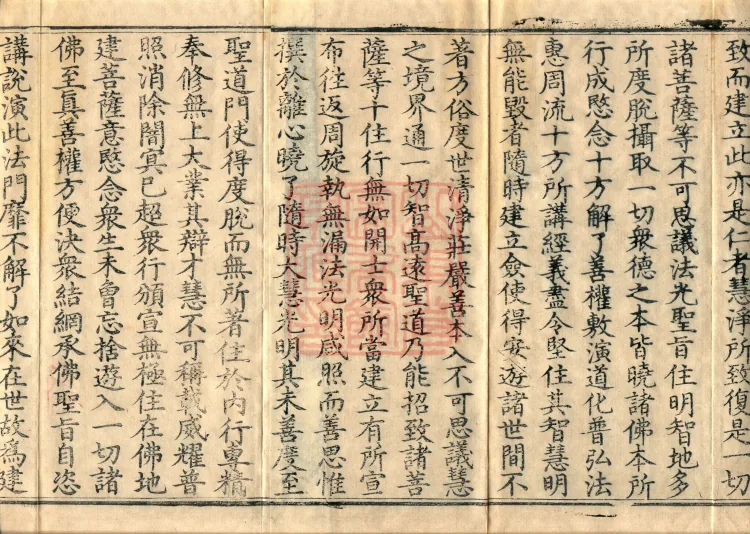 致而建立此亦是仁者慧淨所致復是一切
諸菩薩等不可思議法光聖旨住明智地多
所度脫攝取一切衆德之本皆曉諸佛本所
行成愍念十方解了善權敷演道化普弘法
惠周流十方所講經義盡令堅住其智慧明
無能毀者隨時建立僉使得安遊諸世間不
著方俗度世清淨莊嚴善本入不可思議慧
之境界通一切智高遠聖道乃能招致諸菩
薩等十住行無如開士衆所當建立有所宣
布往返周旋執無漏法光明咸照而善思惟
撰於離心曉了隨時大慧光明其未善度至
聖道門使得度脫而無所著住於内行專精
奉修無上大業其辯才慧不可稱載威耀普
照消除闇冥已超衆行頒宣無極住在佛地
建菩薩意愍念衆生未曾忘捨遊入一切諸
佛至真善權方便決衆結網承佛聖旨自恣
講說演此法門靡不解了如來在世故爲建